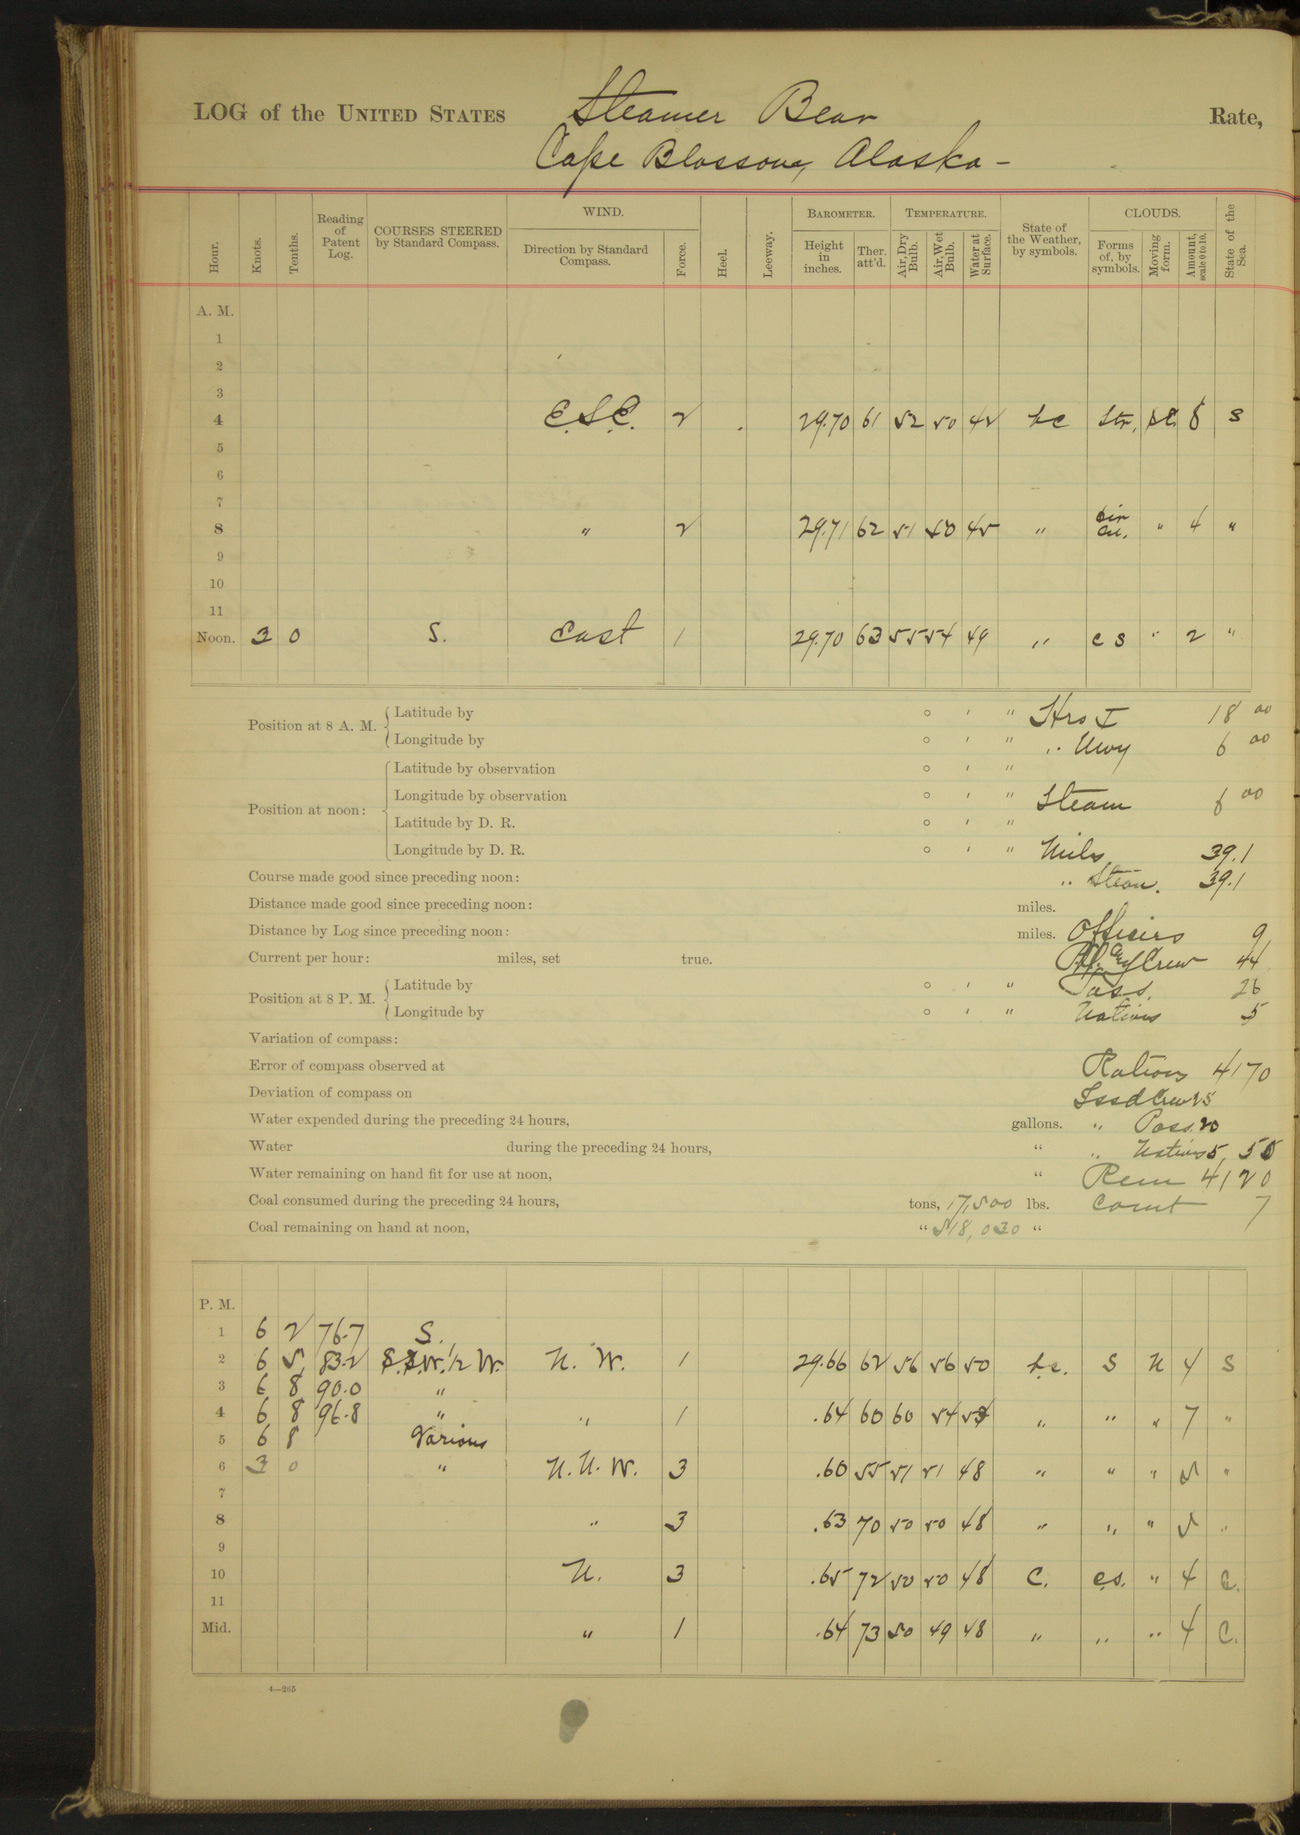 LOG of the UNITED STATES Steamer Bear Rate,
Cape Blossom, Alaska -
Hour. Knots. Tenths. Reading of Patent Log. COURSES STEERED by Standard Compass. WIND. Direction by Standard Compass. Force. Heel. Leeway. BAROMETER. Height in inches. Ther. att'd. TEMPERATURE. Air, Dry Bulb. Air, Wet Bulb. Water at Surface. State of the Weather, by symbols. CLOUDS. Forms of, by symbols. Moving form. Amount, scale 0 to 10. State of the Sea.
A. M.
1
2
3
4 E.S.E. 2 29.70 61 52 50 42 bc Str. 8 S
5
6
7
8 " 2 29.71 62 51 50 45 " Cir Cu. " 4 "
9
10
11
Noon. 3 0 S. East 1 29.70 63 55 54 49 " c s " 2 "
Position at 8 A. M. Latitude by ° ' " Hrs I 18 00
Longitude by ° ' " " Uwy 6 00
Position at noon: Latitude by observation ° ' "
Longitude by observation ° ' " Steam 6 00
Latitude by D. R. ° ' "
Longitude by D. R. ° ' " Miles 39.1
Course made good since preceding noon: " Steam. 39.1
Distance made good since preceding noon: miles.
Distance by Log since preceding noon: miles. Officers 9
Current per hour: miles, set true. Crew 44
Position at 8 P. M. Latitude by ° ' " Pass. 26
Longitude by ° ' " Natives 5
Variation of compass:
Error of compass observed at Rations 4170
Deviation of compass on Issd Crew 25
Water expended during the preceding 24 hours, gallons. " Pass. 20
Water during the preceding 24 hours, " " Natives 5, 50
Water remaining on hand fit for use at noon, " Rem 4120
Coal consumed during the preceding 24 hours, tons, 17,500 lbs. Comt 7
Coal remaining on hand at noon, " 518,030 "
P. M.
1 6 2 76.7 S.
2 6 5 83.2 S.S.W. 1/2 W. N. W. 1 29.66 62 56 56 50 b.c. S N 4 S
3 6 8 90.0 "
4 6 8 96.8 " " 1 .64 60 60 54 " " " 7 "
5 6 8 Various
6 3 0 " N. N. W. 3 .60 55 51 51 48 " " " 5 "
7
8 " 3 .63 70 50 50 48 " " " 5 "
9
10 N. 3 .65 72 50 50 48 C. c.s. " 4 C.
11
Mid. " 1 .64 73 50 49 48 " " " 4 C.
4—265